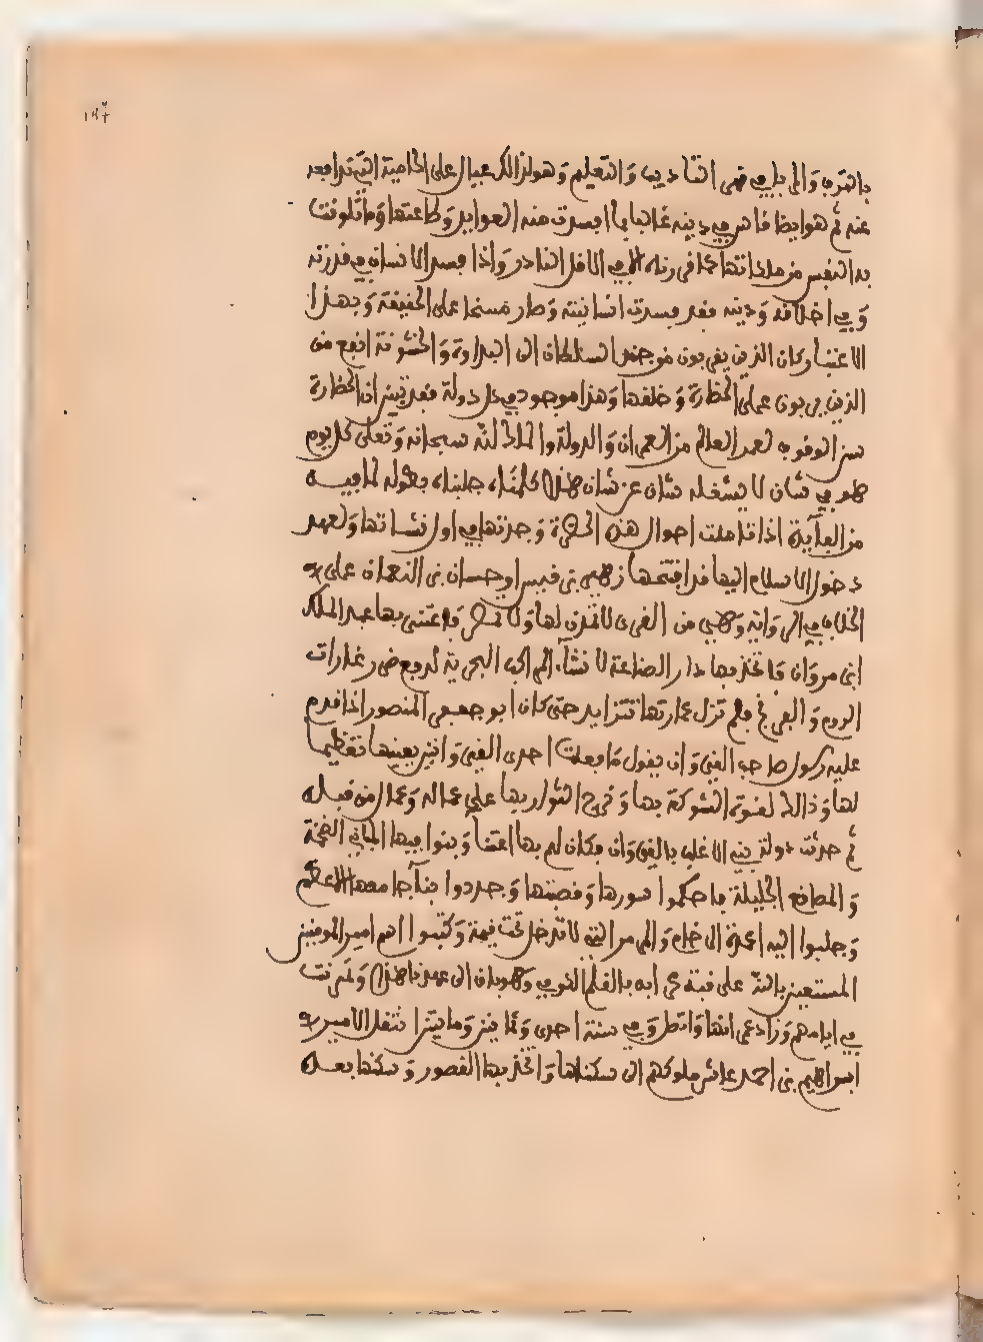 ١٤٦
بالترف والمربا في فهر التأديب والتعليم وهو لذالك عيال على الحامية التي تدافع
عنه ثم هو ايضا فاسد في دينه غالبا بما افسدت منه العوايد وطاعتها وما تلونت
به النفس من ملكاتها كما قررناه الا في الاقل النادر واذا فسد الانسان في قدرته
وفي اخلاقه ودينه فقد فسدت انسانيته وصار مسخا على الحقيقة وبهذا
الاعتبار كان الذين يقربون من جند السلطان الى البداوة والخشونة انفع من
الذين يربون على الحضارة وخلقها وهذا موجود في كل دولة فقد تبين ان الحضارة
سن الوقوف لعمر العالم من العمران والدولة والله سبحانه وتعلى كل يوم
هو في شان لا يشغله شان عن شان هذا كلامه جلبناه بطوله لما فيه
من الفايدة اذا تاملت احوال هذه الحضرة وجدتها في اول نشاتها ولعهد
دخول الاسلام اليها قد افتتحها زهير بن قيس او حسان بن النعمان على
الخلاف في الرواية وهي من القرى لا تمدن لها ولا تحضر واعتنى بها عبد الملك
ابن مروان واتخذ بها دار الصناعة لانشاء المراكب البحرية لدفع ضرر غارات
الروم والفرنج فلم تزل عمارتها تتزايد حتى كان ابو جعفر المنصور اذا قدم
عليه رسول صاحب القيروان يقول ما فعلت احدى القيروانين يعنيها تعظيما
لها وذالك لقوة الشوكة بها وخروج الثوار بها على عماله وعمال من قبله
ثم حدثت دولة بني الاغلب بالقيروان فكان لهم بها اعتناء وبنوا فيها المباني الضخمة
والمصانع الجليلة فاحكموا سورها وقصبتها وجددوا بناء جامعها الاعظم
وجلبوا اليه اعمدة الرخام والمرمر التي لا تدخل تحت قيمة وكتبوا اسم امير المومنين
المستعين بالله على قبة محرابه بالقلم الكوفي وهو باق الى عهدنا هذا وتمدنت
في ايامهم وزاد عمرانها واتصل وفي سنة احدى وثمانين ومايتين انتقل الامير
ابراهيم بن احمد عاشر ملوكهم الى سكناها واتخذ بها القصور وسكنها بعده